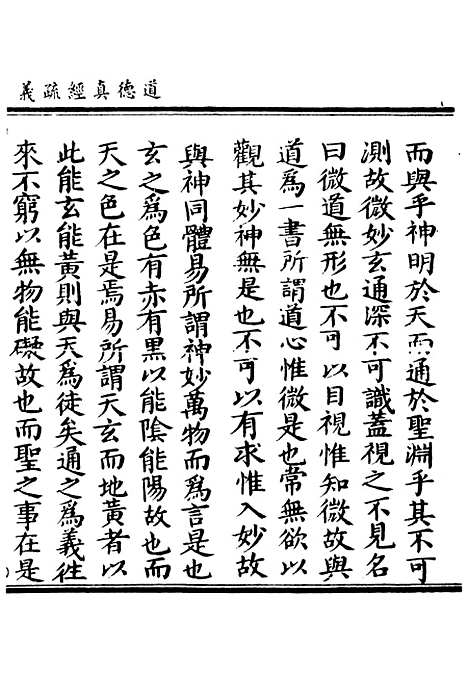 道德真經疏義
而與乎神明於天而通於聖淵乎其不可
測故微妙玄通深不可識蓋視之不見名
曰微道無形也不可以目視惟知微故與
道爲一書所謂道心惟微是也常無欲以
觀其妙神無是也不可以有求惟入妙故
與神同體易所謂神妙萬物而爲言是也
玄之爲色有赤有黑以能陰能陽故也而
天之色在是焉易所謂天玄而地黃者以
此能玄能黃則與天爲徒矣通之爲義往
來不窮以無物能礙故也而聖之事在是